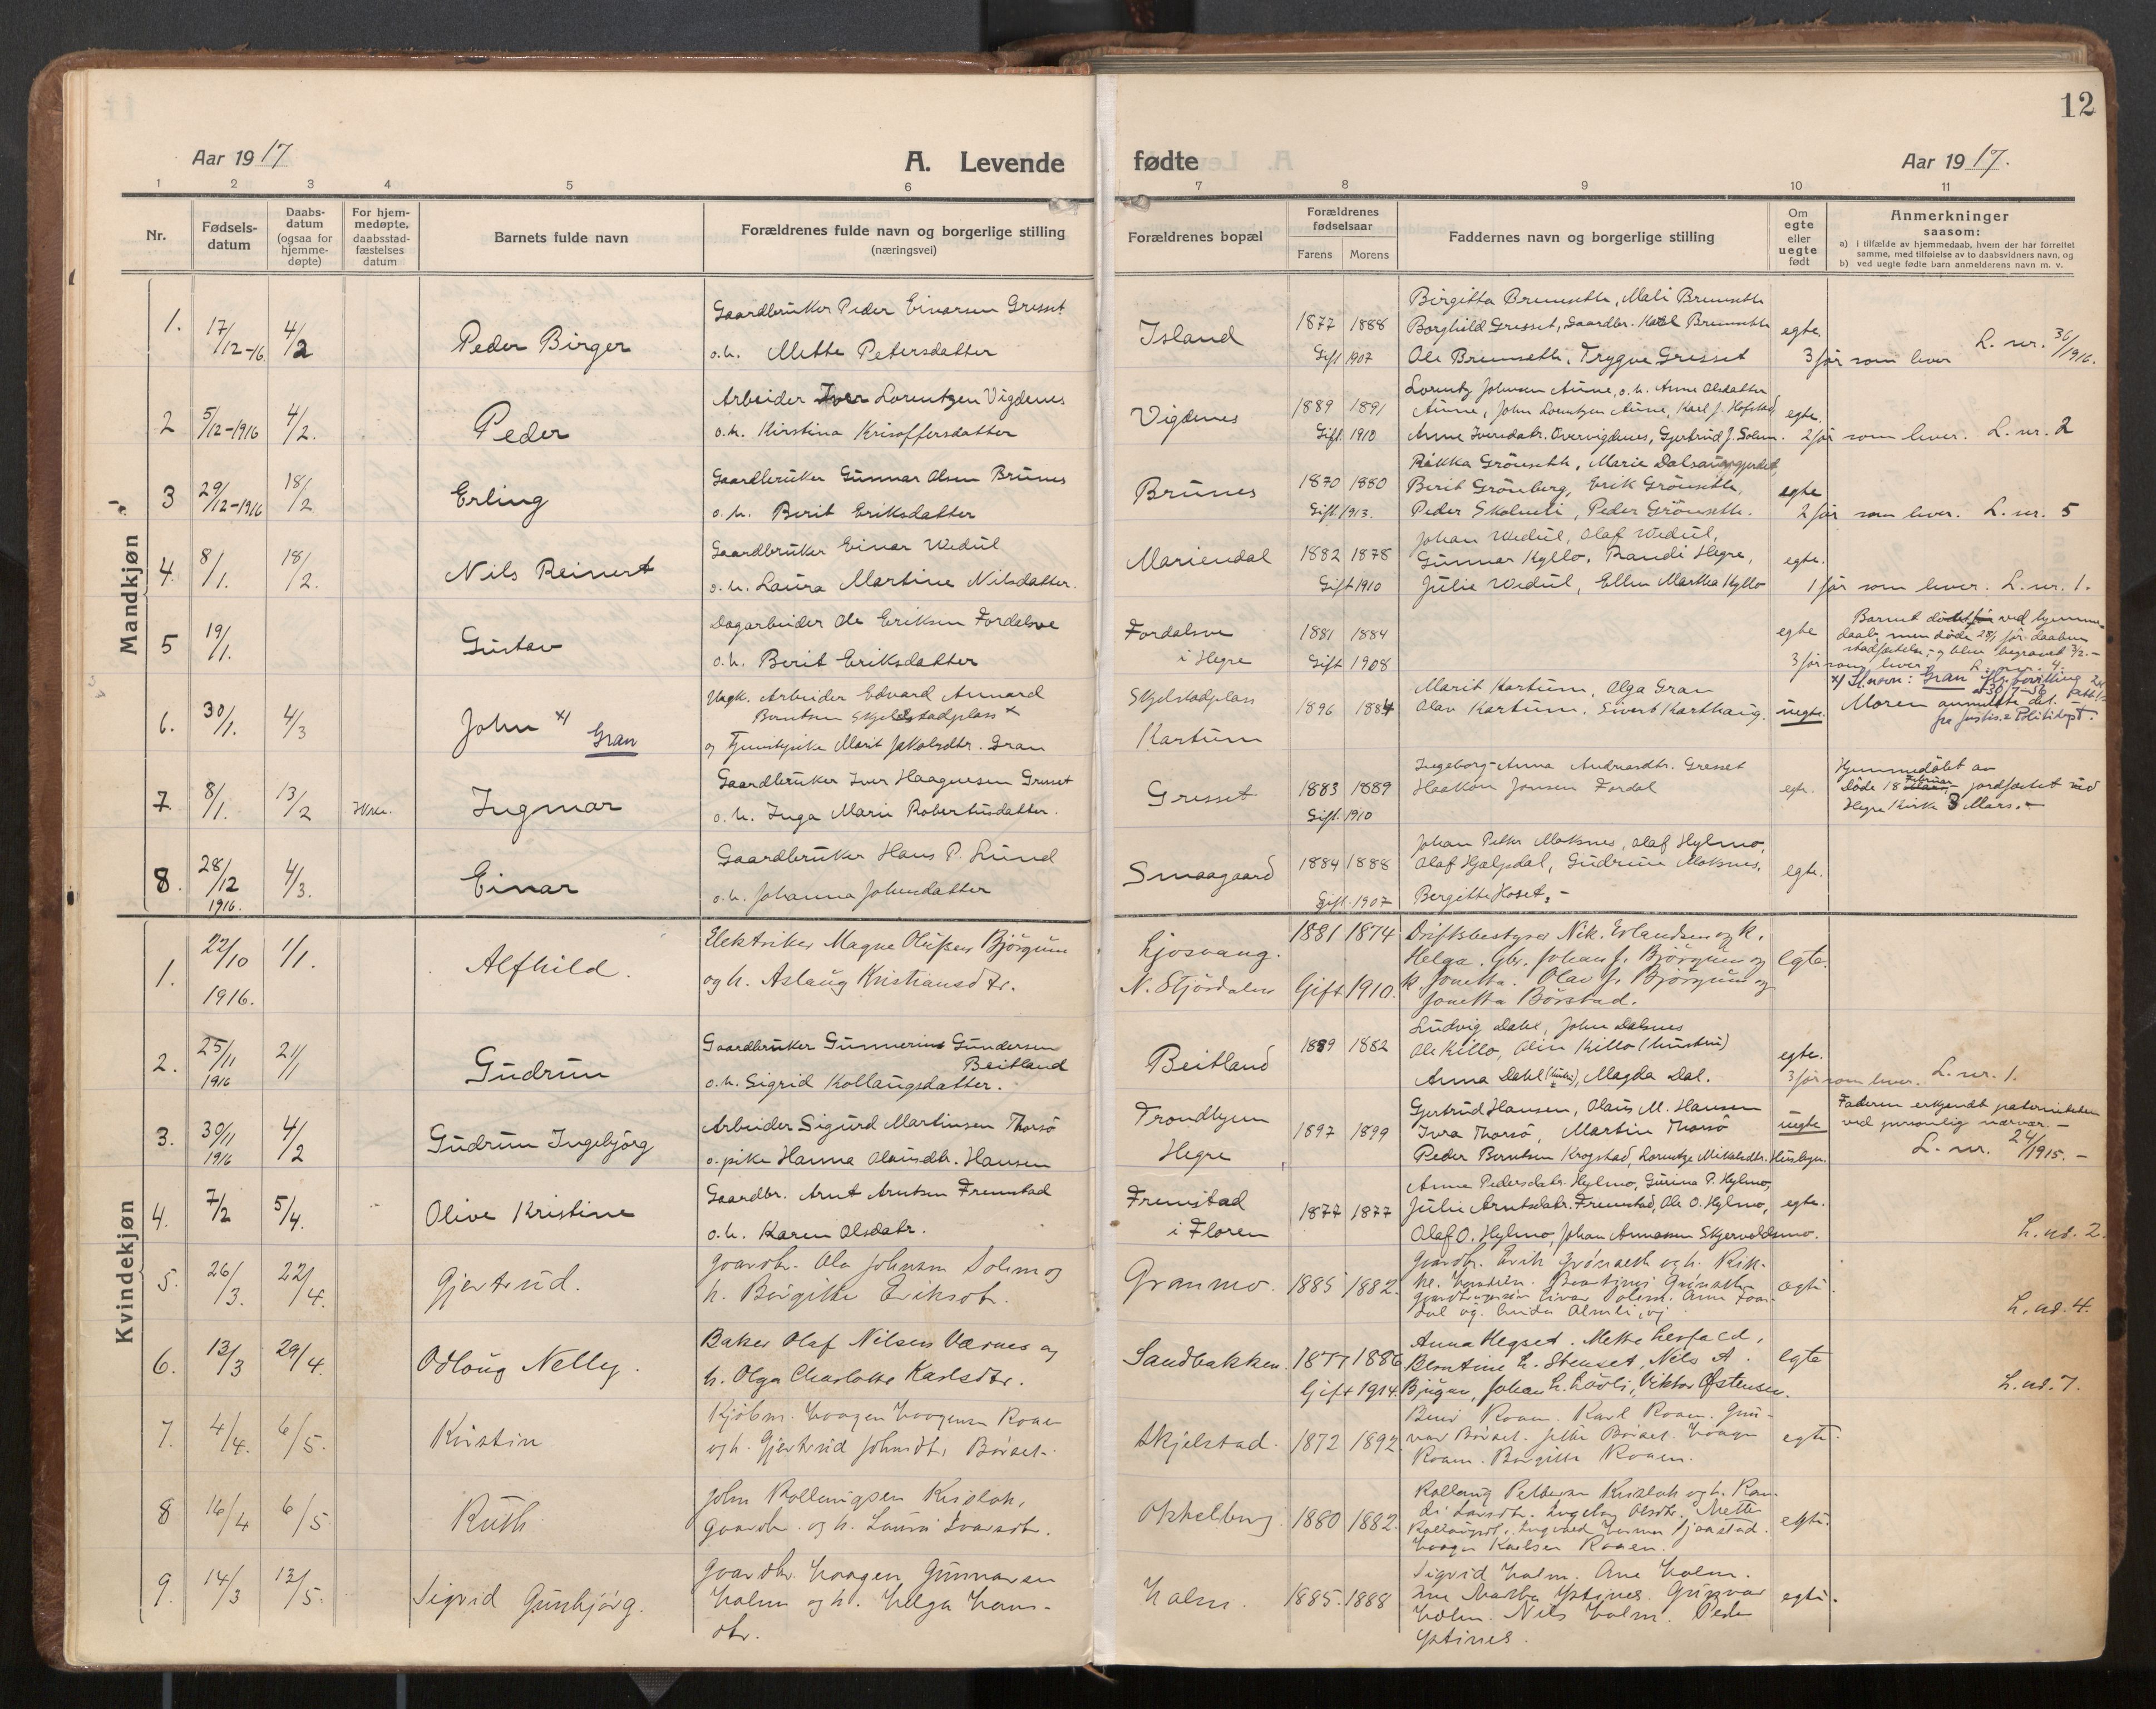 12
Aar 1917
A. Levende fødte
Aar 1917.
1 2 3 4 5 6 7 8 9 10 11
Nr.
Fødsels-
datum
Daabs-
datum
(ogsaa for
hjemme-
døpte)
For hjem-
medøpte,
daabsstad-
fæstelses
datum
Barnets fulde navn
Forældrenes fulde navn og borgerlige stilling
(næringsvei)
Forældrenes bopæl
Forældrenes
fødselsaar
Farens Morens
Faddernes navn og borgerlige stilling
Om
egte
eller
uegte
født
Anmerkninger
saasom:
a) i tilfælde av hjemmedaab, hvem der har forrettet
samme, med tilføielse av to daabsvidners navn, og
b) ved uegte fødte barn anmelderens navn m. v.
Mandkjøn
1. 17/12-16 4/2 Peder Birger
Gaardbruker Peder Einarsen Gresset
o.h. Mette Petersdatter
Island
1877 1888
Gift 1907
Birgitta Brumseth, Mali Brumseth
Borghild Gresset, Gaardbr. Brumseth
Ole Brumseth, Trygve Gresset
egte.
3 før som lever L. nr. 36/1916.
2 5/12-1916 4/2. Peder
Arbeider Iver Lorentzen Vigdenes
o.h. Kirstina Krisoffersdatter
Vigdenes
1889 1891
Gift 1910
Lorentz Johnsen Aune, o.h. Anne Olsdatter
Aune, John Lorntzen Aune, Karl J. Hofstad
Anne Iversdatr. Overvigdenes, Gjertrud J. Solem.
egte.
2 før som lever. L. nr. 2
3 29/12-1916 18/2 Erling
Gaardbruker Gunnar Olsen Brunes
o.h. Berit Eriksdatter
Brunes
1870 1880
Gift 1913.
Rikka Grönseth, Marie
Berit Grönberg, Erik Grönseth,
Peder, Peder Grönseth.
egte
2 før som lever. L. nr. 5
4. 8/1. 18/2. Nils Reinert
Gaardbruker Einar Wedul
o.h. Laura Martine Nilsdatter.
Mariendal
1882 1878
Gift 1910
Johan Wedul, Olaf Wedul,
Gunnar Kyllo, Randi Hegre,
Julie Wedul, Ellen Martha Kyllo
egte.
1 før som lever. L. nr. 1.
5 19/1. Gustav
Dagarbeider Ole Eriksen Fordalsve
o.h. Berit Eriksdatter
Fordalsve
i Hegre
1881 1884
Gift 1908
egte
Barnet ved hjemme-
daab, men döde 28/1 før daaben
stadfæstelse, og blev begravet 3/2.-
3 før som lever. L. nr. 4.
6. 30/1. 4/3 John x) Gran
Ugk. Arbeider Edvard Annard
Berntsen Skjelstadplass x
og Tjenstpike Marit Jakobsdtr. Gran
Skjelstadplass
Kartum
1896 1884
Marit Kartum, Olga Gran
Olav Kartum. Sivert Karthaug.
uegte.
x) Sl.navn: Gran
Moren anmeldte det. -
7. 8/1. 13/2 Ingmar
Gaardbruker Iver Haagensen Gresset
o.h. Inga Marie Robertusdatter.
Gresset
1883 1889
Gift. 1910
Ingeborg Anna Andreasdtr. Gresset
Haakon Jonsen Fordal
egte.
Hjemmedöbt av
Döde 18 Februar jordfæstet ved
Hegre Kirke 8 Mars. -
8. 28/12 1916. 4/3. Einar
Gaardbruker Hans P. Lund
o.h. Johanna Johnsdatter
Smaagaard
1884 1888
Gift. 1907
Johan Petter Moksnes, Olaf Hylmo,
Olaf Hjelpdal, Gudrun Moksnes,
Bergitte Hoset. -
egte.
Kvindekjøn
1. 22/10 1916. 1/1. Alfhild.
Elektriker Magne Olufsen Björgum
og h. Aslaug Kristiansdtr.
Ljosvang.
N. Stjördalen
1881 1874
Gift 1910.
Driftsbestyrer Nik. Erlandsen og k.
Helga. Gbr. Johan J. Björgum og
k. Jonetta. Olav J. Björgum og
Jonetta Börstad.
egte.
2. 25/11 1916 21/1 Gudrun
Gaardbruker Gunnerius Gundersen
Beitland
o.h. Sigrid Kollaugsdatter.
Beitland
1889 1882
Ludvig Dahl, John Dalsnes
Ole Killo, Olin Killo (hustru)
Anna Dahl, Magda Dal.
egte.
3 før som lever. L. nr. 1.
3. 30/11 1916 4/2 Gudrun Ingebjörg
Arbeider Sigurd Martinsen Thorsö
o. pike Hanna Olausdtr. Hansen
Trondhjem
Hegre
1897 1899
Gjertrud Hansen, Olaus M. Hansen
Ivra Thorsö, Martin Thorsö
Peder Berntsen Krogstad, Lorentze Mikalsdtr. Husbyn.
uegte
Faderen erkjendt paterniteten
ved personlig nærvær. -
L. nr. 24/1915. -
4. 7/2 5/4. Olive Kristine
Gaardbr. Arnt Arntsen Fremstad
o.h. Karen Olsdatr.
Fremstad
i Floren
1877 1877
Anne Pedersdatr. Hylmo, Gurina P. Hylmo,
Julie Arntsdatr. Fremstad, Ole O. Hylmo,
Olaf O. Hylmo, Johan Annassen Skjervoldsmo.
egte.
L. nr. 2.
5. 26/3. 22/4. Gjertrud.
Gaardbr. Ola Johnsen Solem og
h. Birgitte Eriksdtr.
Granmo.
1885 1882.
Gaardbr. Erik Grönseth og h. Rik-
egte.
L. nr. 4.
6. 13/3 29/4. Odloug Nelly.
Baker Olaf Nilsen Værnes og
h. Olga Charlotte Karlsdtr.
Sandbakken.
1877 1886
Gift 1914.
Anna Hegset. Mette
Berntine L. Stenset, Nils A.
Johan L. Lövli, Viktor Östensen.
egte
L. nr. 7.
7. 4/4. 6/5. Kristin
Kjöbm. Haagen Haagensen Roaen
og h. Gjertrud Johnsdtr. Börset.
Skjelstad.
1872 1892.
Roaen. Karl Roaen. Gun-
nar Börset. Börset. Haagen
Roaen. Birgitte Roaen.
egte.
8 16/4 6/5 Ruth
John Kollaugsen
gaardbr. og h. Laura Ivarsdtr.
1880 1882.
Haagen Karlsen Roaen.
egte.
9. 14/3 13/5. Sigrid Gunbjörg.
Gaardbr. Haagen Gunnarsen
Holm og h. Helga Hans-
dtr.
Holm.
1885. 1888
Sigrid Holm. Ane Holm.
Ystines. Gunvar
Holm. Nils Holm. Peder
Ystines.
egte.